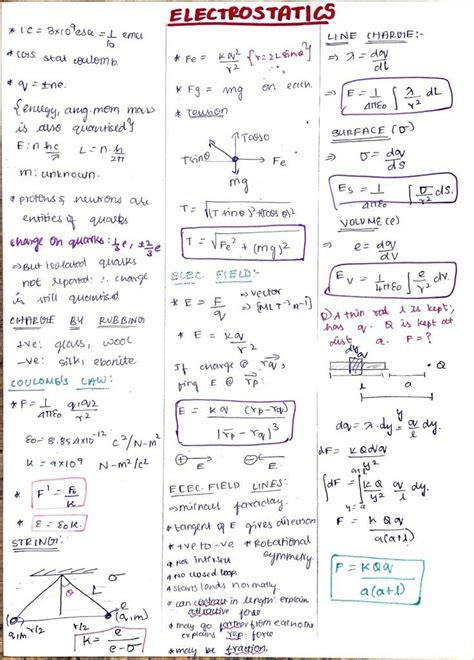 ELECTROSTATICS
* 1C = 3x10⁹esu = 1/10 emu
* q = ±ne.
{energy, ang.mom, mass
is also quantised}
E: nhc/λ L = n.h/2π
m: unknown.
* protons & neutrons are
entities of quarks
charge on quarks: ±1/3 e, ±2/3 e
⇒ But isolated quarks
not reported ∴ charge
is still quantised
CHARGE BY RUBBING
+ve: glass, wool
-ve: silk, ebonite
COULOMB'S LAW:
* F = 1/4πε₀ q₁q₂/r²
ε₀ - 8.854x10⁻¹² C²/N-m²
k = 9x10⁹ N-m²/C²
* F' = F₀/K
* ε = ε₀K.
STRING:
θ L σ
q,m r/2 r/2 (q,m)
K = ρ/ρ-σ
* Fe = Kq²/r² {r=2Lsinθ}
* Fg = mg on each
* Tension
Tcosθ
Tsinθ Fe
mg
T = √(Tsinθ)²+(Tcosθ)²
T = √Fe² + (mg)²
ELEC. FIELD:-
* E = F/q → vector
→ [MLT⁻³A⁻¹]
* E = Kq/r²
If charge @ rq,
find E @ rp
E = Kq (rp-rq)/|rp-rq|³
E E
ELEC. FIELD LINES:-
→ michael faraday.
* tangent of E gives direction
* +ve to -ve
* Rotational symmetry
* Not intersect
* No closed loop
* starts/ends normally
* can contract in length: explain
attractive force
* may go further from eachother
explains rep. force
* may be fraction.
LINE CHARGE:-
⇒ λ = dq/dL
E = 1/4πε₀ ∫ λ/r² dL
SURFACE (σ)
⇒ σ = dq/ds
Es = 1/4πε₀ ∫ σ/r² ds.
VOLUME (ρ)
⇒ ρ = dq/dv
Ev = 1/4πε₀ ∫ ρ/r² dv.
Q) A thin rod l is kept,
has q. Q is kept at
dist a. F = ?
dy q
Q
l a
dq = λ.dy = q/l dy.
dF = KQdq/y²
∫dF = ∫ KQ/y² q/l dy.
F = KQq/a(a+l)
F = KQq/a(a+l)